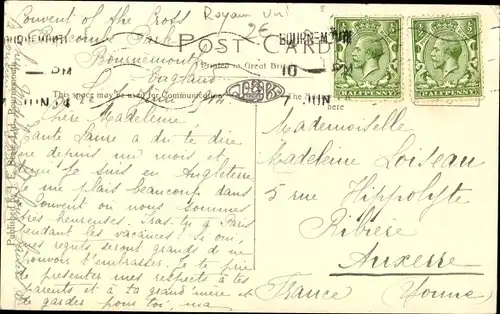 Convent of the Cross
Royaume Uni
2€
Boscombe Park
Bournemouth
England
POST CARD
Printed in Great Britain
This space may be used for Communication
here
BOURNEMOUTH
10 PM
7 JUN
BOURNEMOUTH
PM
JUN 24
HALFPENNY
HALFPENNY
Chère Madeleine
Tante Laure a dû te dire
que depuis un mois et
je suis en Angleterre
me plais beaucoup dans
couvent où nous sommes
très heureuses. Iras-tu à Paris
pendant les vacances? Si oui,
mes regrets seront grands de ne
pouvoir t'embrasser. Je te prie
de présenter mes respects à tes
parents et à ta grand'mère et
de garder pour toi, ma
Mademoiselle
Madeleine Loiseau
5 rue Hippolyte
Ribière
Auxerre
France (Yonne)
Bournemouth